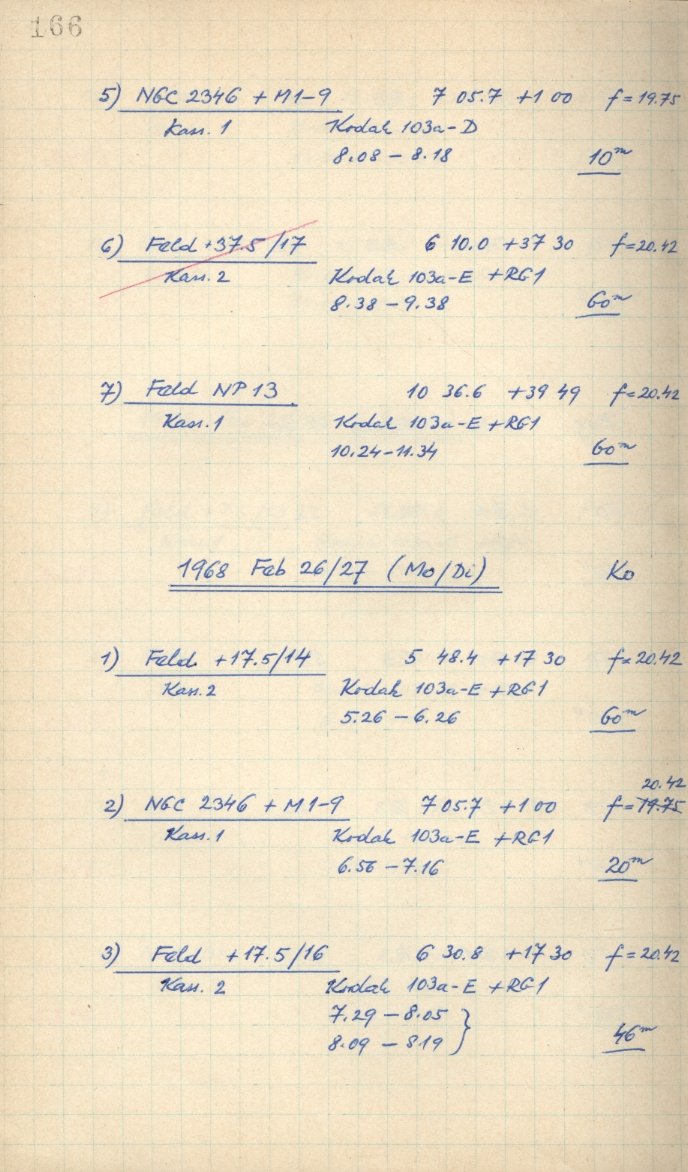 166
5) NGC 2346 + M1-9 7 05.7 +1 00 f = 19.75
Kass. 1 Kodak 103a-D
8.08 – 8.18 10m
6) Feld +37.5/17 6 10.0 +37 30 f = 20.42
Kass. 2 Kodak 103a-E + RG1
8.38 – 9.38 60m
7) Feld NP 13 10 36.6 +39 49 f = 20.42
Kass. 1 Kodak 103a-E + RG1
10.24 – 11.34 60m
1968 Feb 26/27 (Mo/Di) Ko
1) Feld +17.5/14 5 48.4 +17 30 f = 20.42
Kass. 2 Kodak 103a-E + RG1
5.26 – 6.26 60m
20.42
2) NGC 2346 + M1-9 7 05.7 +1 00 f = 19.75
Kass. 1 Kodak 103a-E + RG1
6.56 – 7.16 20m
3) Feld +17.5/16 6 30.8 +17 30 f = 20.42
Kass. 2 Kodak 103a-E + RG1
7.29 – 8.05 }
8.09 – 8.19 } 46m